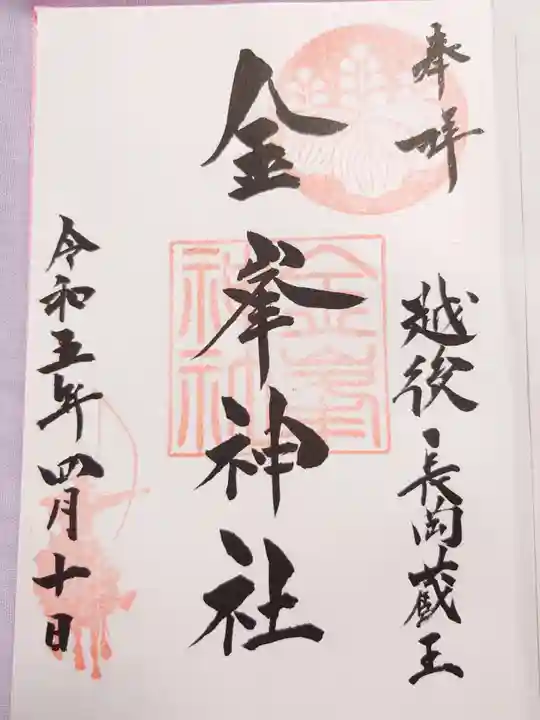 奉拝
越後長岡蔵王
金峯神社
金峯
神社
令和五年四月十日